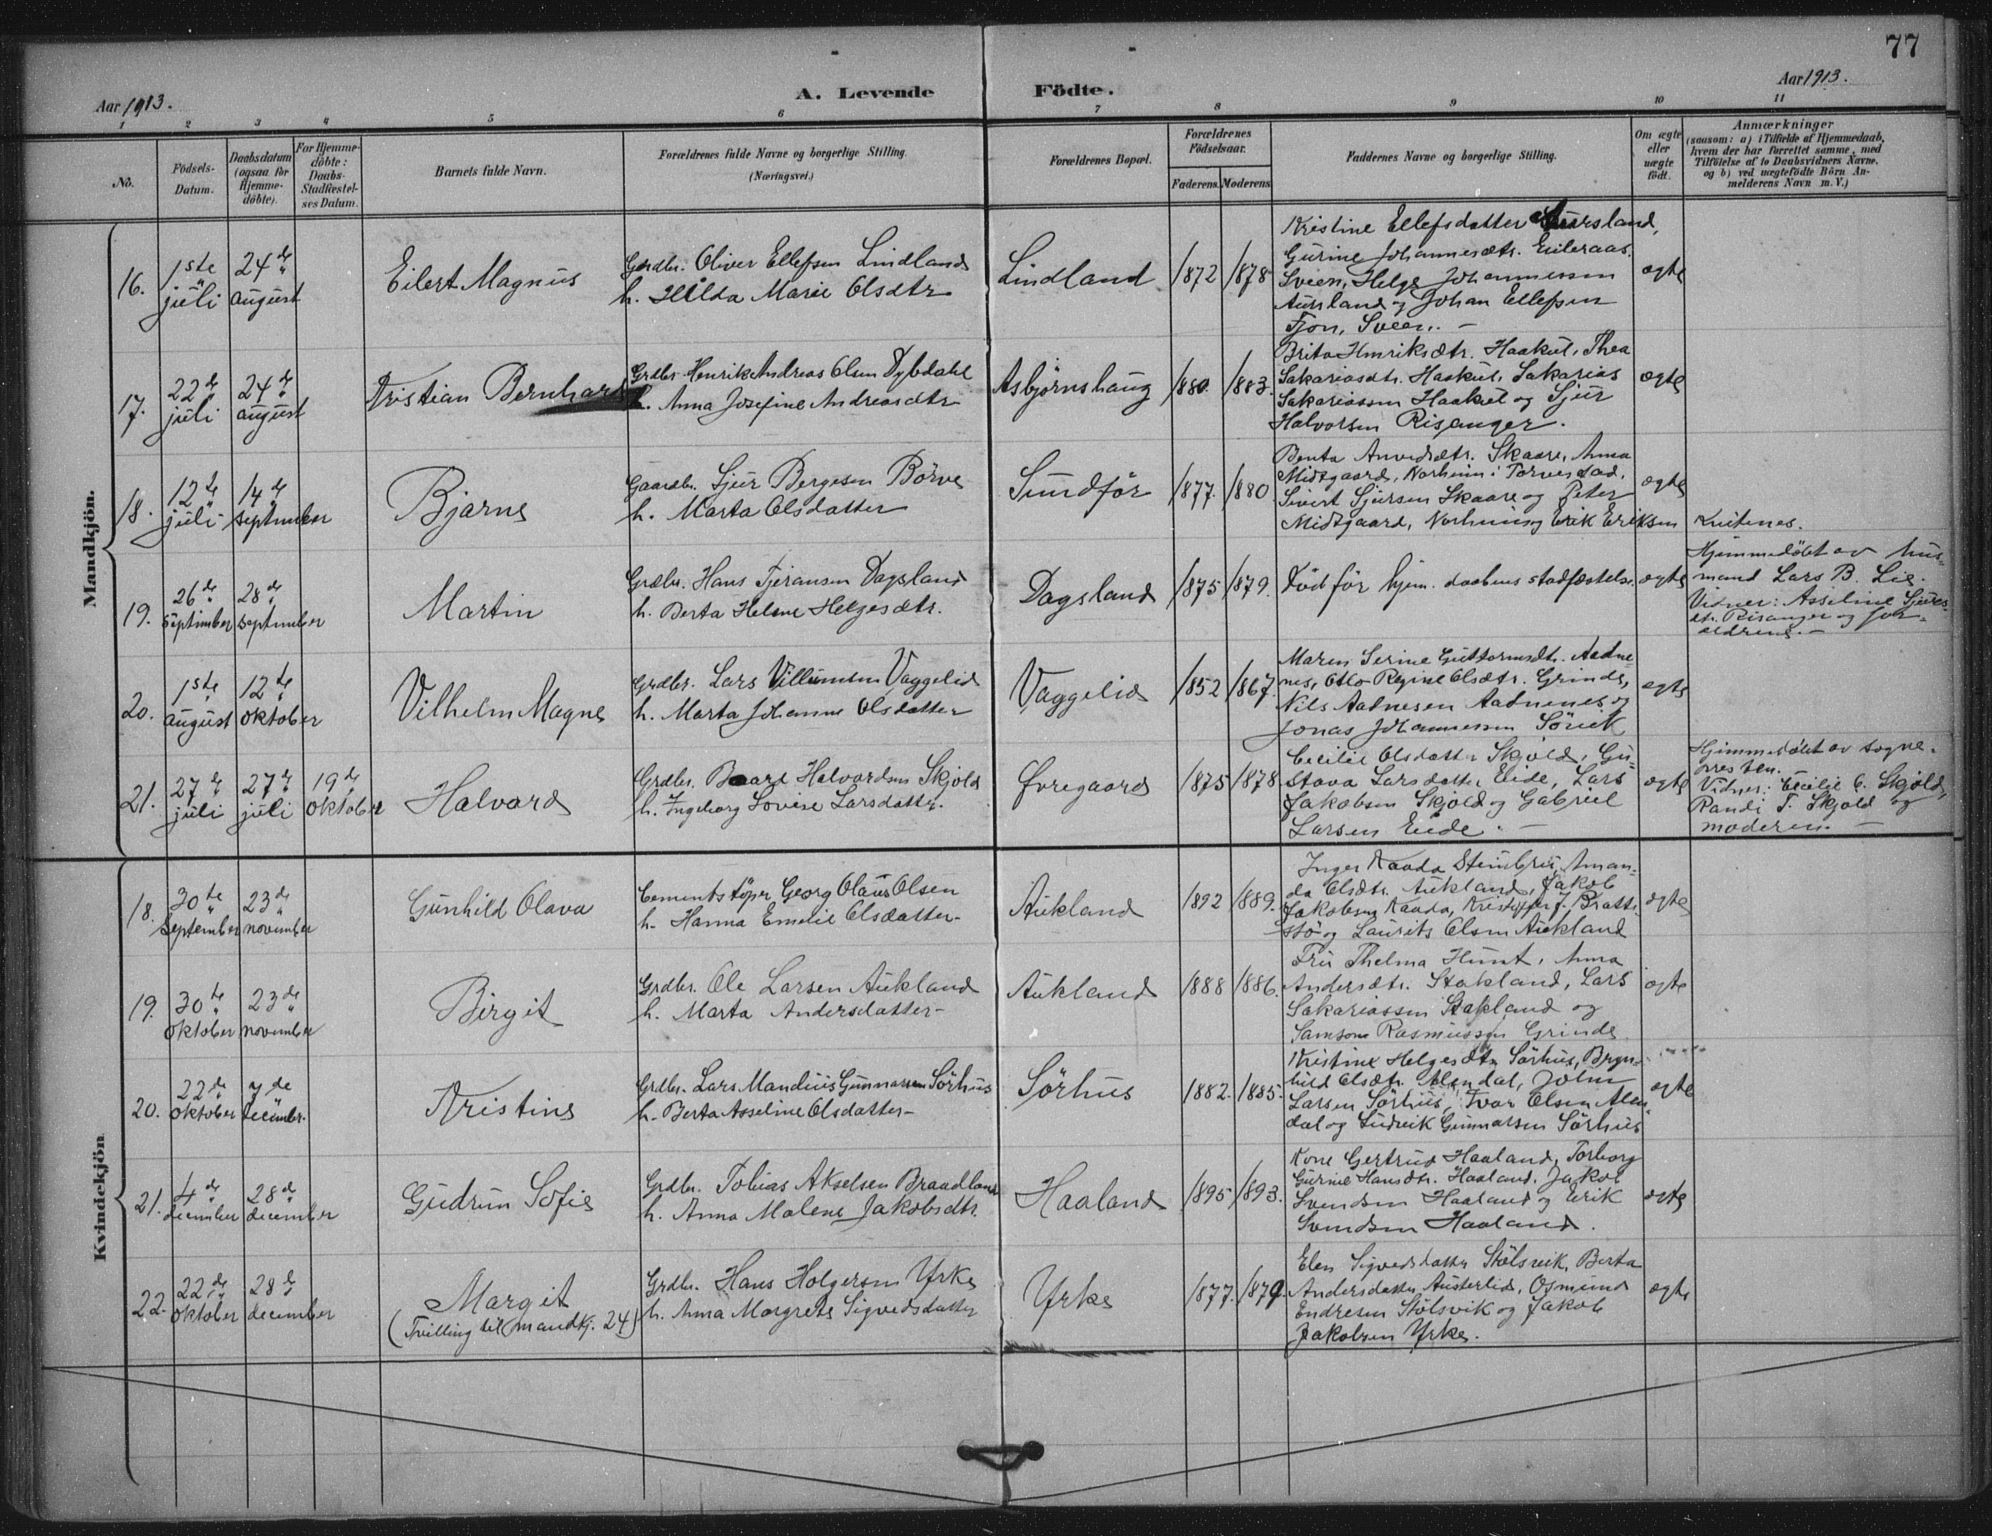 77
Aar 1913.
A. Levende Födte.
Aar 1913.
1 2 3 4 5 6 7 8 9 10 11
No.
Födsels-
Datum.
Daabsdatum
(ogsaa for
Hjemme-
döbte).
For Hjemme-
döbte:
Daabs-
Stadfæstel-
ses Datum.
Barnets fulde Navn.
Forældrenes fulde Navne og borgerlige Stilling.
(Næringsvei.)
Forældrenes Bopæl.
Forældrenes
Födselsaar.
Faderens. Moderens.
Faddernes Navne og borgerlige Stilling.
Om ægte
eller
uægte
födt.
Anmærkninger
(saasom: a) i Tilfælde af Hjemmedaab,
hvem der har forrettet samme, med
Tilföielse af to Daabsvidners Navne,
og b) ved uægtefödte Börn An-
melderens Navn m. V.)
Mandkjön.
16.
1ste
juli
24de
august
Eilert Magnus
Grdbr. Oliver Ellefsen Lindland
h. Hilda Marie Olsdtr
Lindland
1872
1878
Kristine Ellefsdatter
Gurine Johannesdtr. Eileraas,
Sveen, Helge Johannessen
Aursland og Johan Ellefsen
Fjon, Sveen. -
egte
17.
22de
juli
24de
august
Kristian Bernhard
Grdbr. Henrik Andreas Olsen Dybdahl
h. Anna Josefine Andreasdtr
Asbjørnshaug
1880
1883.
Brita Henriksdtr. Haakul, Thea
Sakariasdtr. Haakul, Sakarias
Sakariassen Haakul og Sjur
Halvorsen Risanger.
egte
18.
12te
juli
14de
september
Bjarne
Gaardbr. Sjur Bergesen Börve
h. Marta Olsdatter
Sundför
1877.
1880
Benta Skaare, Anna
Midtgaard, Norheim i Torvestad,
Sivert Sjursen Skaare og Peter
Midtgaard, Norheim og Erik Eriksen
egte
Knitenes.
19.
26de
september
28de
september
Martin
Grdbr. Hans Tjeransen Dagsland
h. Berta Helene Helgesdtr.
Dagsland
1875
1879.
Död för hjem. daabens stadfæstelse.
egte
Hjemmedöbt av hus-
mand Lars B. Lie.
Vidner: Asseline Sjurs-
dtr. Risanger og for-
ældrene. -
20.
1ste
august
12te
oktober
Vilhelm Magne
Grdbr. Lars Villumsen Vaggelid
h. Marta Johanne Olsdatter
Vaggelid
1852
1867.
Maren Serine Guttormsdtr. Aadne-
nes, Regine Olsdtr. Grinde,
Nils Aadnesen Aadnenes og
Jonas Johannessen Sörvik
egte
21.
27de
juli
27de
juli
19de
oktober
Halvard
Grdbr. Baard Halvardsen Skjold
h. Ingeborg Lovise Larsdatter.
Øvregaard
1875
1878
Cecilie Olsdatter Skjold, Gu-
stava Larsdatter Eide, Lars
Jakobsen Skjold og Gabriel
Larsen Eide. -
egte
Hjemmedöbt av sogne-
presten.
Vidner: Cecilie O. Skjold,
Randi T. Skjold og
moderen. -
Kvindekjön.
18.
30te
September
23de
november
Gunhild Olava
Cementstøper Georg Olaus Olsen
h. Hanna Emelie Olsdatter-
Aukland
1892
1889.
Inger Kaada Steinbru, Aman-
da Olsdtr. Aukland, Jakob
Jakobsen Kaada, Kristoffer J. Bratt-
stö og Laurits Olsen Aukland
egte
19.
30te
oktober
23de
november
Birgit
Grdbr. Ole Larsen Aukland
h. Marta Andersdatter-
Aukland
1888
1886.
Fru Thelma Hunt, Anna
Andersdtr. Stakland, Lars
Sakariassen Stakland og
Samson Rasmussen Grinde
egte
20.
22de
oktober
7de
december.
Kristine
Grdbr. Lars Mandius Gunnarssen Sörhus
h. Berta Asseline Olsdatter-
Sörhus
1882.
1885.
Kristine Helgesdtr Sörhus, Bryn-
hild Olsdtr. Alendal, John
Larsen Sörhus, Ivar Olsen Alen-
dal og Ludvik Gunnarsen Sörhus
egte
21.
4de
december
28de
december
Gudrun Sofie
Grdbr. Tobias Akselsen Braadland
h. Anna Malene Jakobsdtr.
Haaland
1895
1893.
Kone Gertrud Haaland, Torborg
Gurine Hansdtr. Haaland, Jakob
Svendsen Haaland og Erik
Svendsen Haaland.
egte
22.
22de
oktober
28de
december
Margit
(Tvilling til mandkj. 24)
Grdbr. Hans Holgersen Yrke
h. Anna Margrete Sigvedsdatter
Yrke
1877.
1879.
Elen Sigvedsdatter Stölsvik, Berta
Andersdatter Austerlid, Osmund
Endresen Stölsvik og Jakob
Jakobsen Yrke.
egte